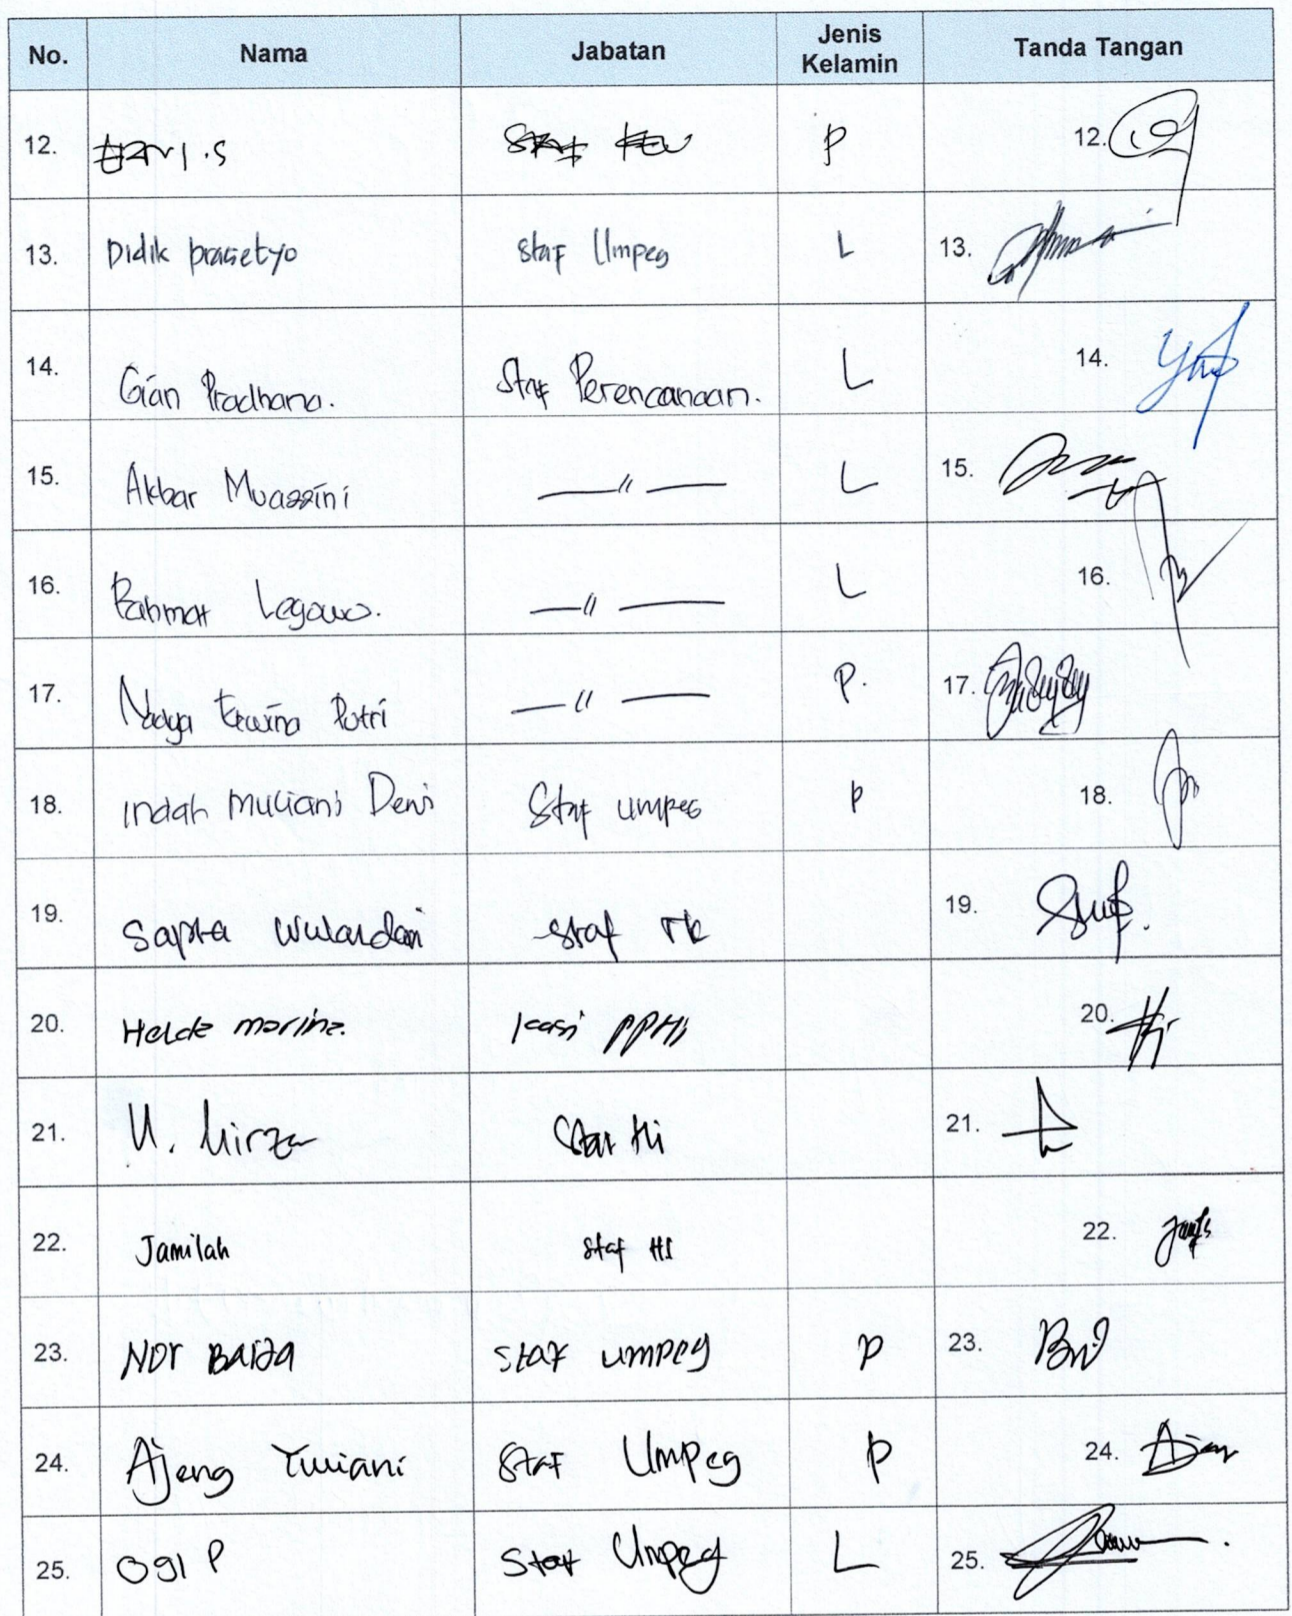 No. Nama Jabatan Jenis Kelamin Tanda Tangan
12. .S Staf Keu P 12.
13. Didik Prasetyo Staf Umpeg L 13.
14. Gian Pradhana. Staf Perencanaan. L 14.
15. Akbar Muazzini —〃— L 15.
16. Rahmat Legowo. —〃— L 16.
17. Nadya Putri —〃— P. 17.
18. Indah Muliani Dewi Staf Umpeg P 18.
19. Sapta Wulandari Staf TK 19.
20. Helda Marina. Kasi PPHI 20.
21. U. Mirza Staf HI 21.
22. Jamilah Staf HI 22.
23. Nor Baida Staf umpeg P 23.
24. Ajeng Yuviani Staf Umpeg P 24.
25. Ogi P Staf Umpeg L 25.